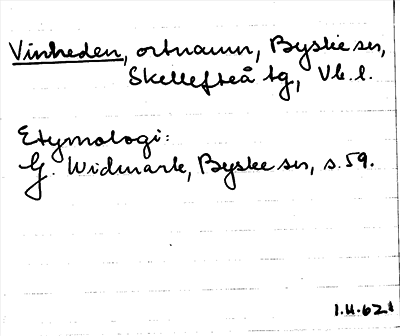 Vinheden, ortnamn, Byske sn,
Skellefteå tg, Vb. l.
Etymologi:
G. Widmark, Byske sn, s. 59.
1.4.62